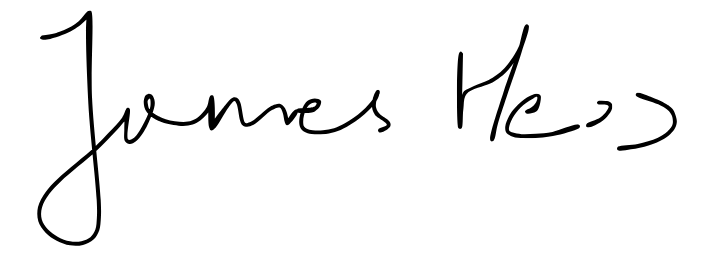 James Hess